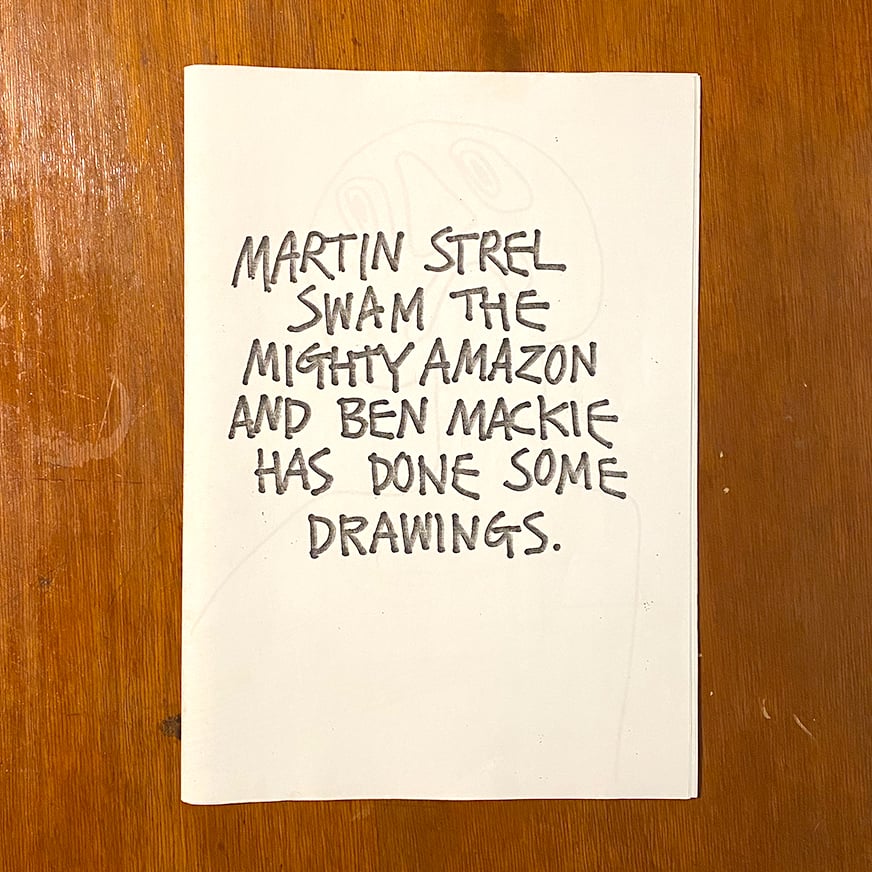 MARTIN STREL
SWAM THE
MIGHTY AMAZON
AND BEN MACKIE
HAS DONE SOME
DRAWINGS.